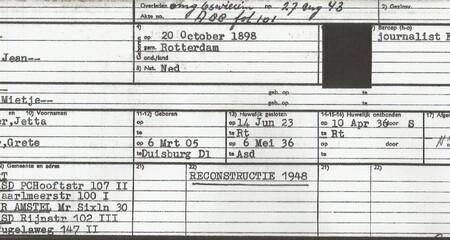 Overleden omgekomen op 27 aug 43 2) Geslow.
Akte no. A 88 fol 101
4) op 20 October 1898 Beroep (h-o)
gem. Rotterdam journalist
Jean-- ond./land
5) Nat. Ned
geb. op
Mietje-- geb. op
en 10) Voornamen 11-12) Geboren 13) Huwelijk gesloten 14-15-16) Huwelijk ontbonden 17)
r,Jetta op op 14 Jun 23 op 10 Apr 36 door S
te te Rt te Rt
,Grete op 6 Mrt 05 op 6 Mei 36 op door
te Duisburg Dl te Asd te
Gemeente en adres 21) 22) 21) 22)
T RECONSTRUCTIE 1948
SD PCHooftstr 107 II
aarlmeerstr 100 I
R AMSTEL Mr Sixln 30
SD Rijnstr 102 III
ugelaweg 147 II